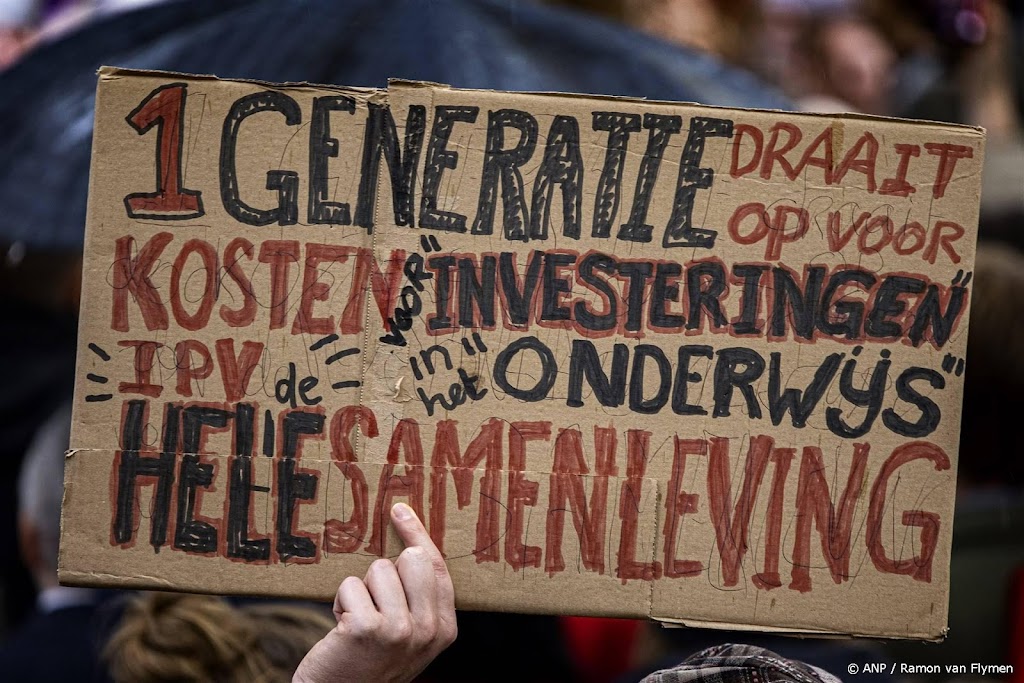 1 GENERATIE DRAAIT
OP VOOR
KOSTEN VOOR "INVESTERINGEN"
IPV de in het "ONDERWIJS"
HELE SAMENLEVING
© ANP / Ramon van Flymen